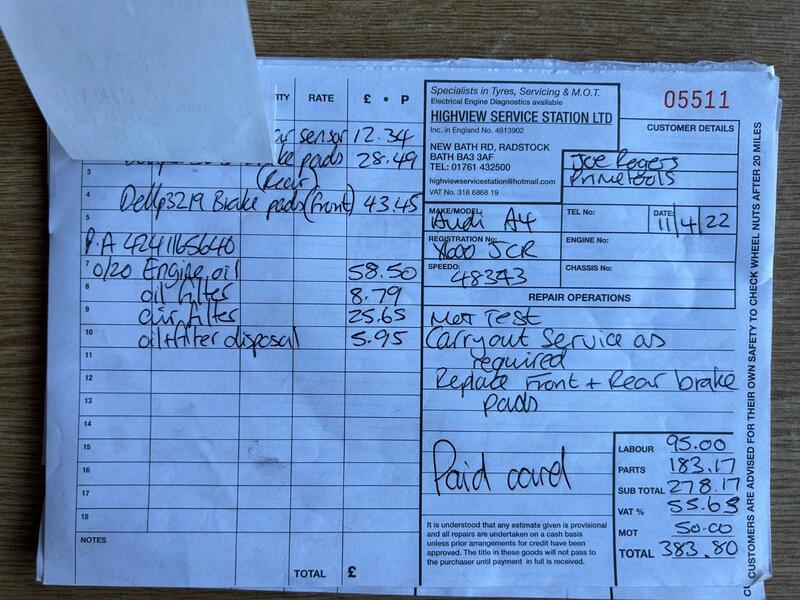 TY RATE £ • P
ar sensor 12.34
ke pads 28.49
3 (Rear)
4 Delp3219 Brake pads (front) 43.45
5
P.A 4241165640
7 0/20 Engine oil 58.50
8 oil filter 8.79
9 air filter 25.65
10 oil+filter disposal 5.95
11
12
13
14
15
16
17
18
NOTES
TOTAL £
Specialists in Tyres, Servicing & M.O.T.
Electrical Engine Diagnostics available
HIGHVIEW SERVICE STATION LTD
Inc. in England No. 4613902
NEW BATH RD, RADSTOCK
BATH BA3 3AF
TEL: 01761 432500
highviewservicestation@hotmail.com
VAT No. 318 6868 19
05511
CUSTOMER DETAILS
Joe Rogers
Primetools
MAKE/MODEL: Audi A4
TEL No:
DATE: 11/4/22
REGISTRATION No: JCR
ENGINE No:
SPEEDO: 48343
CHASSIS No:
REPAIR OPERATIONS
Mot Test
Carryout Service as
required
Replace Front + Rear brake
pads
Paid card
LABOUR 95.00
PARTS 183.17
SUB TOTAL 278.17
VAT % 55.63
MOT 50.00
TOTAL 383.80
It is understood that any estimate given is provisional
and all repairs are undertaken on a cash basis
unless prior arrangements for credit have been
approved. The title in these goods will not pass to
the purchaser until payment in full is received.
CUSTOMERS ARE ADVISED FOR THEIR OWN SAFETY TO CHECK WHEEL NUTS AFTER 20 MILES